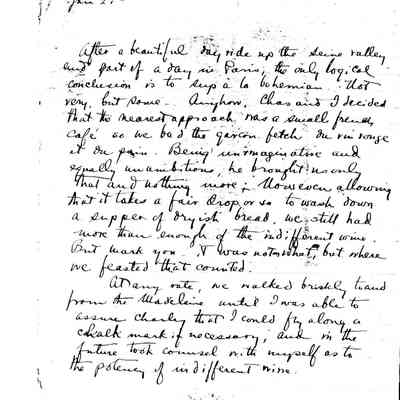 After a beautiful day ride up the Seine valley
and part of a day in Paris, the only logical
conclusion is to sup à la bohemian. Not
very, but some. Anyhow, Chas and I decided
that the nearest approach was a small french
café so we bad the garcon fetch du vin rouge
et du pain. Being unimaginative and
equally unambitious, he brought us only
that and nothing more; However allowing
that it takes a fair drop or so to wash down
a supper of dryish bread, we still had
more than enough of the indifferent wine.
But mark you, it was not what, but where
we feasted that counted.
At any rate, we walked briskly to and
from the Madeleine until I was able to
assure Charley that I could fly along a
chalk mark if necessary; and in the
future took counsel with myself as to
the potency of indifferent wine.